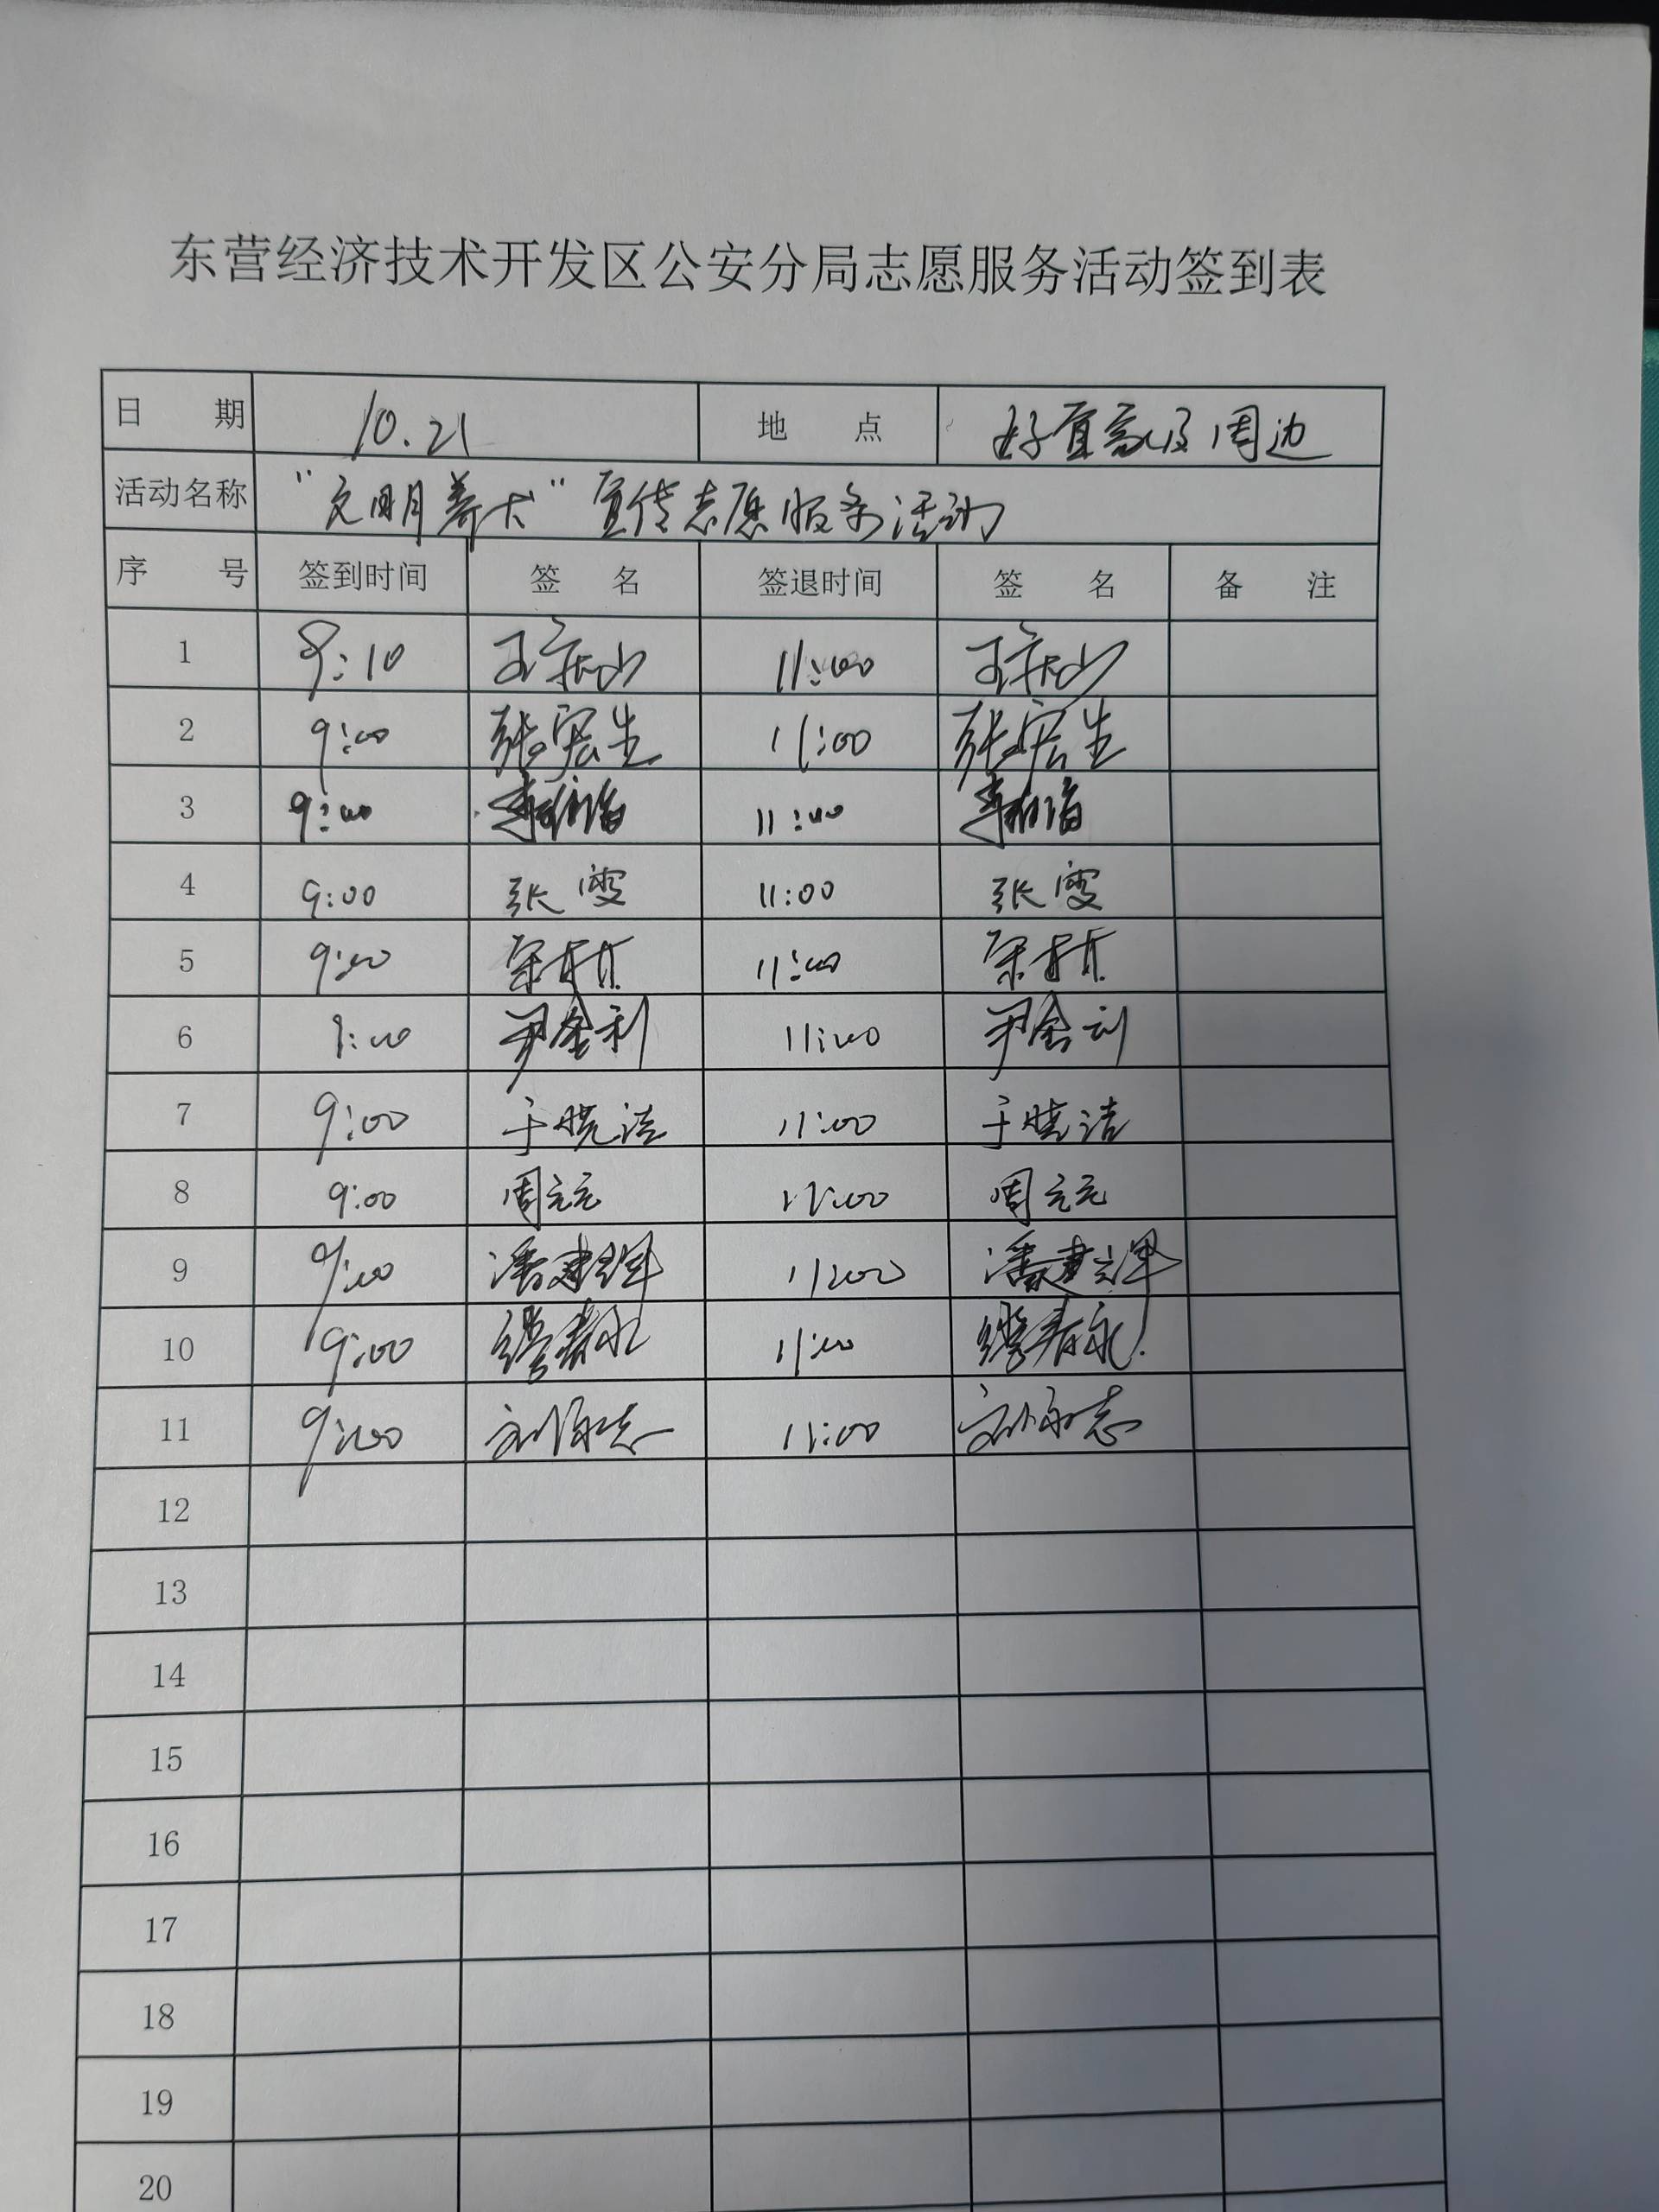 东营经济技术开发区公安分局志愿服务活动签到表
日期 10.21 地点 好宜家及周边
活动名称 “文明养犬”宣传志愿服务活动
序号 签到时间 签名 签退时间 签名 备注
1 9:10 11:00
2 9:00 张宏生 11:00 张宏生
3 9:00 11:00
4 9:00 张雯 11:00 张雯
5 9:00 11:00
6 9:00 尹金利 11:00 尹金利
7 9:00 于晓洁 11:00 于晓洁
8 9:00 周元元 11:00 周元元
9 9:00 潘建辉 11:00 潘建辉
10 9:00 缪春永 11:00 缪春永
11 9:00 刘永志 11:00 刘永志
12
13
14
15
16
17
18
19
20